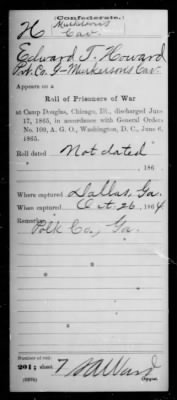 Confederate.
H
Cav.
Edward T. Howard
Pvt. Co. I - Murkerson's Cav
Appears on a
Roll of Prisoners of War
at Camp Douglas, Chicago, Ill., discharged June
17, 1865, in accordance with General Orders
No. 109, A. G. O., Washington, D. C., June 6,
1865.
Roll dated
Not dated
, 186 .
Where captured Dallas, Ga.
When captured Oct. 26, 1864
Remarks:
Polk Co., Ga.
Number of roll:
201; sheet 7
Copyist.